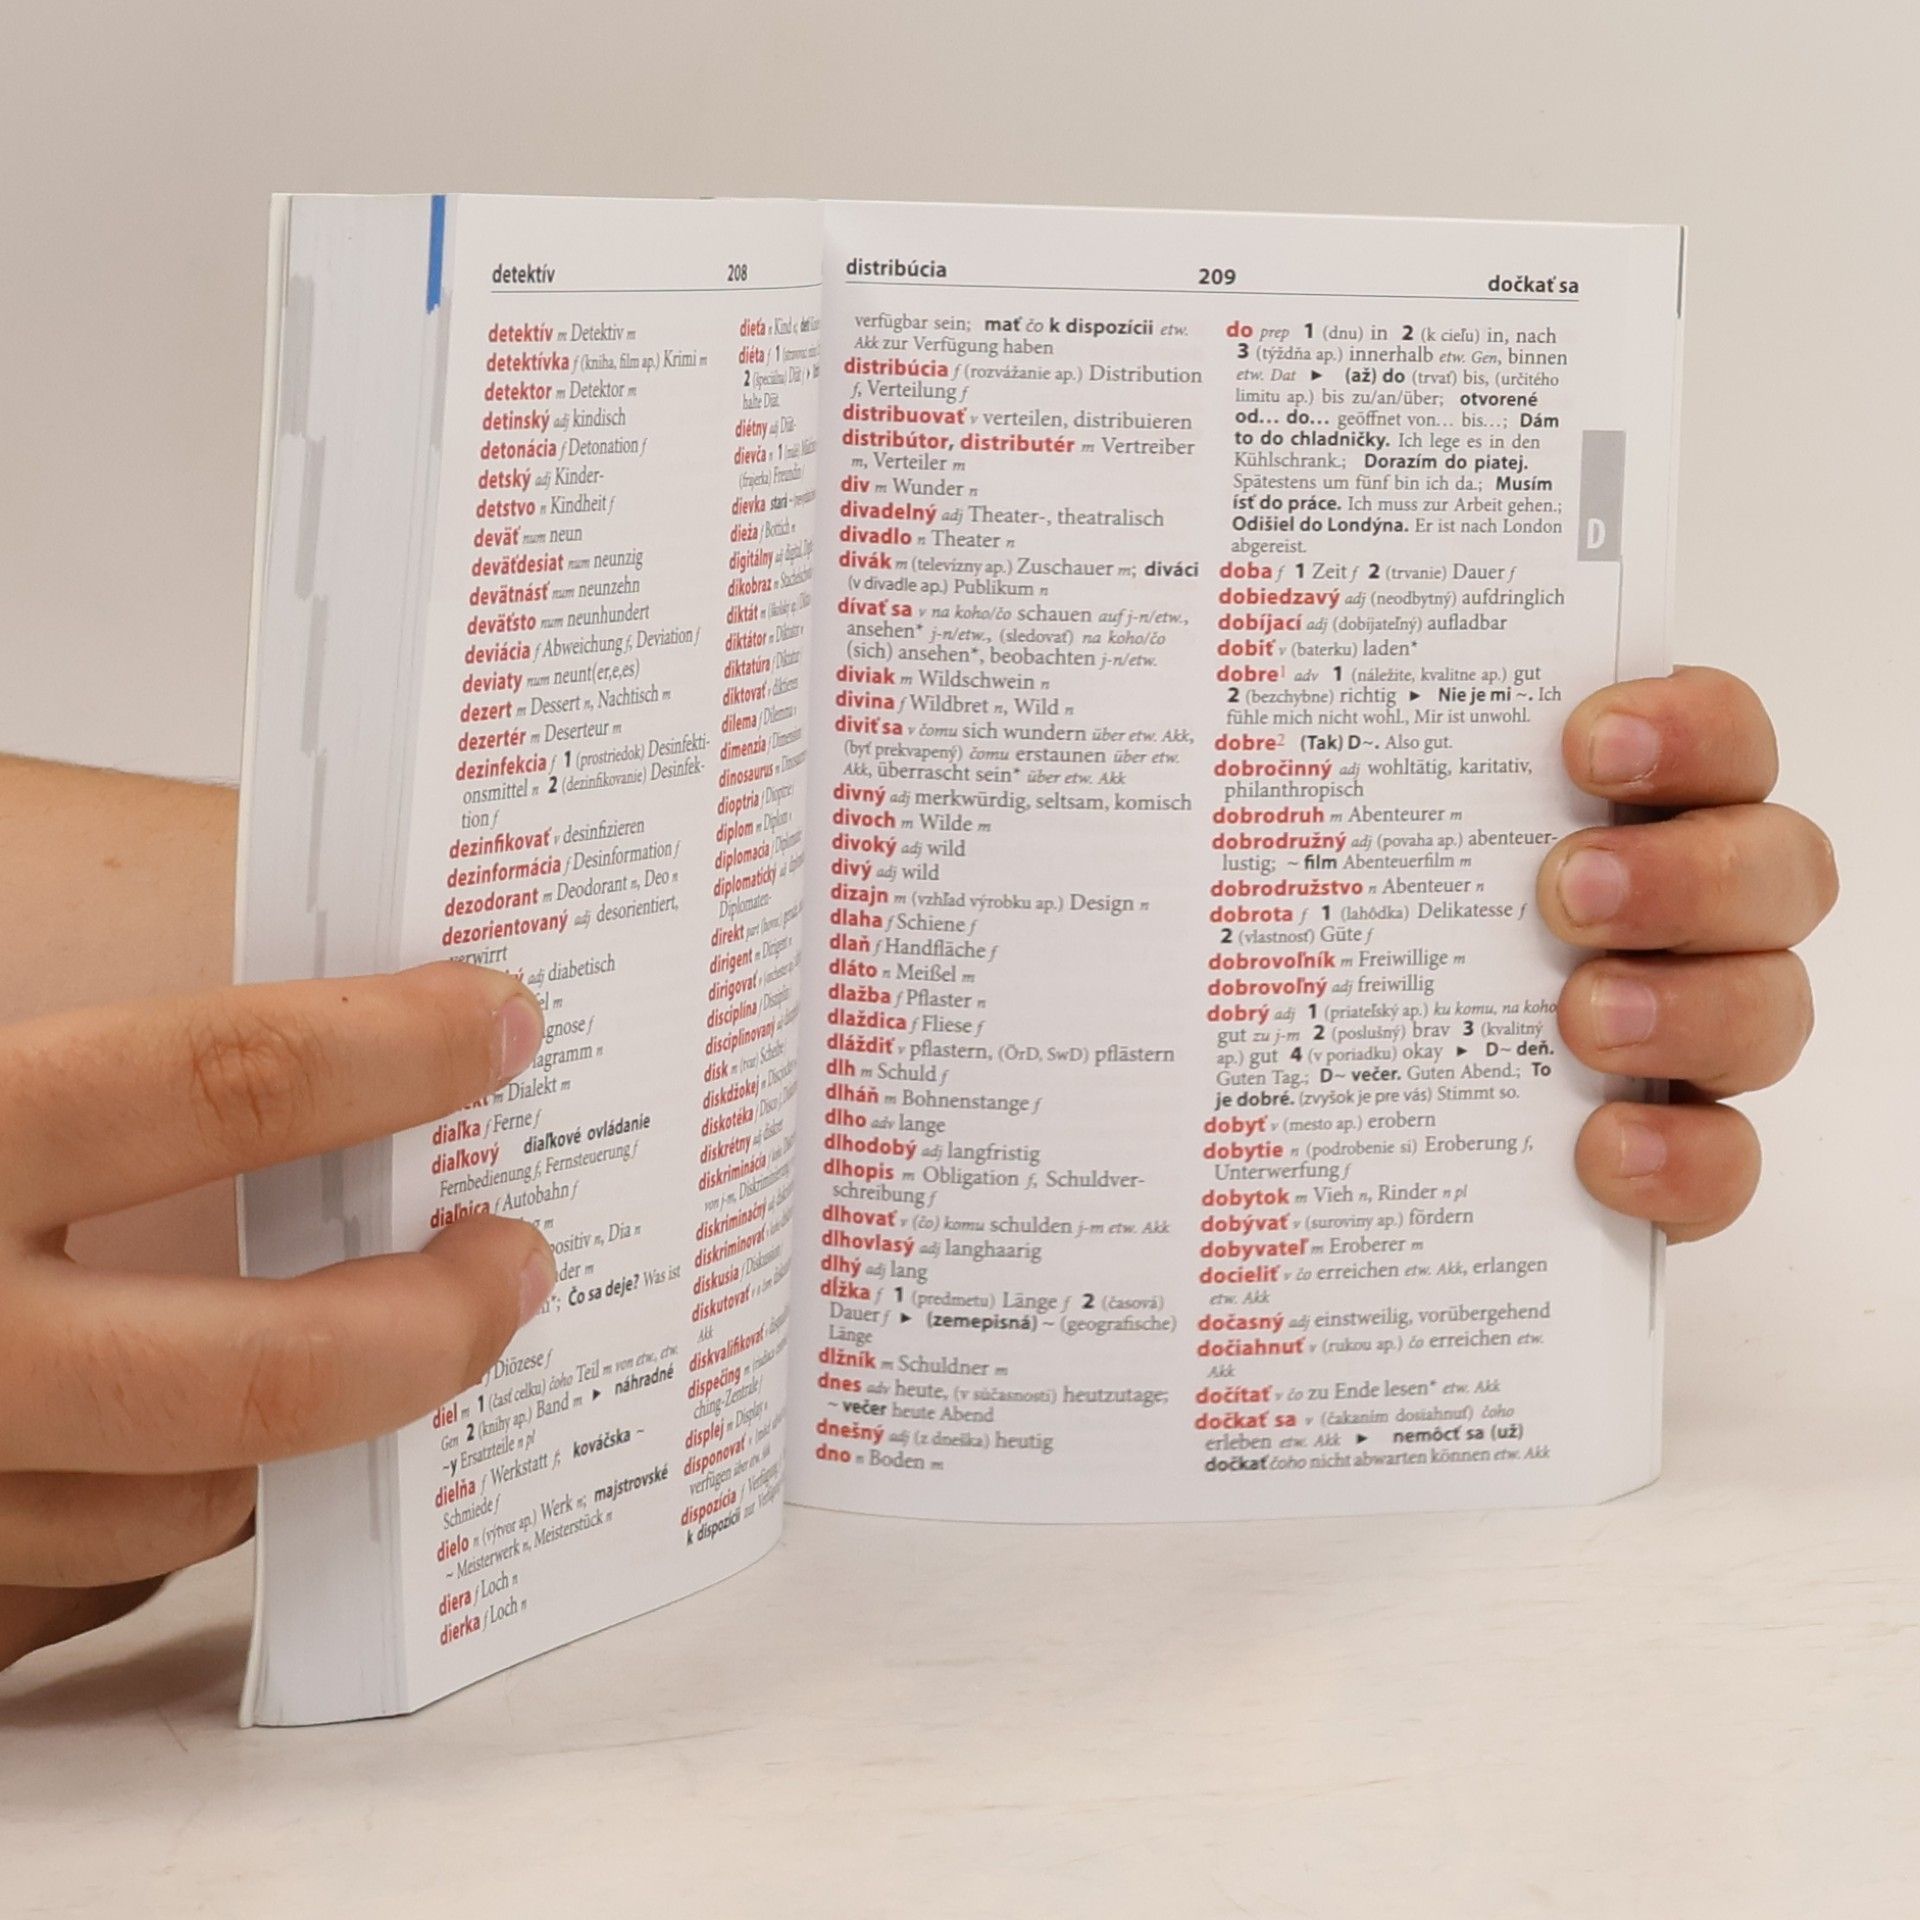 detektív 208
detektív m Detektiv m
detektívka f (kniha, film ap.) Krimi m
detektor m Detektor m
detinský adj kindisch
detonácia f Detonation f
detský adj Kinder-
detstvo n Kindheit f
deväť num neun
deväťdesiat num neunzig
devätnásť num neunzehn
deväťsto num neunhundert
deviácia f Abweichung f, Deviation f
deviaty num neunt(er,e,es)
dezert m Dessert n, Nachtisch m
dezertér m Deserteur m
dezinfekcia f 1 (prostriedok) Desinfekti-
onsmittel n 2 (dezinfikovanie) Desinfek-
tion f
dezinfikovať v desinfizieren
dezinformácia f Desinformation f
dezodorant m Deodorant n, Deo n
dezorientovaný adj desorientiert,
verwirrt
adj diabetisch
m
f
n
m Dialekt m
diaľka f Ferne f
diaľkový diaľkové ovládanie
Fernbedienung f, Fernsteuerung f
diaľnica f Autobahn f
m
n, Dia n
m
Čo sa deje? Was ist
f Diözese f
diel m 1 (časť celku) čoho Teil m von etw., etw.
Gen 2 (knihy ap.) Band m ► náhradné
~y Ersatzteile n pl
dielňa f Werkstatt f; kováčska ~
Schmiede f
dielo n (výtvor ap.) Werk n; majstrovské
~ Meisterwerk n, Meisterstück n
diera f Loch n
dierka f Loch n
dieťa n Kind n;
diéta f 1
2 (špeciálna) Diät f ►
halte Diät.
diétny adj Diät-
dievča n 1
(frajerka) Freundin f
dievka stará ~
dieža f Bottich m
digitálny adj digital,
dikobraz m
diktát m (školský ap.)
diktátor m Diktator m
diktatúra f Diktatur f
diktovať v diktieren
dilema f Dilemma n
dimenzia f Dimension f
dinosaurus m
dioptria f Dioptrie f
diplom m Diplom n
diplomacia f
diplomatický adj
Diplomaten-
direkt
dirigent m Dirigent m
dirigovať v
disciplína f
disciplinovaný adj
disk m (tvar) Scheibe f
diskdžokej m
diskotéka f
diskrétny adj diskret
diskriminácia f
von j-m,
diskriminačný adj
diskriminovať v
diskusia f Diskussion f
diskutovať v
Akk
diskvalifikovať v
dispečing m
ching-Zentrale f
displej m Display n
disponovať v
verfügen über etw. Akk
dispozícia f
k dispozícii zur
distribúcia 209 dočkať sa
verfügbar sein; mať čo k dispozícii etw.
Akk zur Verfügung haben
distribúcia f (rozvážanie ap.) Distribution
f, Verteilung f
distribuovať v verteilen, distribuieren
distribútor, distributér m Vertreiber
m, Verteiler m
div m Wunder n
divadelný adj Theater-, theatralisch
divadlo n Theater n
divák m (televízny ap.) Zuschauer m; diváci
(v divadle ap.) Publikum n
dívať sa v na koho/čo schauen auf j-n/etw.,
ansehen* j-n/etw., (sledovať) na koho/čo
(sich) ansehen*, beobachten j-n/etw.
diviak m Wildschwein n
divina f Wildbret n, Wild n
diviť sa v čomu sich wundern über etw. Akk,
(byť prekvapený) čomu erstaunen über etw.
Akk, überrascht sein* über etw. Akk
divný adj merkwürdig, seltsam, komisch
divoch m Wilde m
divoký adj wild
divý adj wild
dizajn m (vzhľad výrobku ap.) Design n
dlaha f Schiene f
dlaň f Handfläche f
dláto n Meißel m
dlažba f Pflaster n
dlaždica f Fliese f
dláždiť v pflastern, (ÖrD, SwD) pflästern
dlh m Schuld f
dlháň m Bohnenstange f
dlho adv lange
dlhodobý adj langfristig
dlhopis m Obligation f, Schuldver-
schreibung f
dlhovať v (čo) komu schulden j-m etw. Akk
dlhovlasý adj langhaarig
dlhý adj lang
dĺžka f 1 (predmetu) Länge f 2 (časová)
Dauer f ► (zemepisná) ~ (geografische)
Länge
dlžník m Schuldner m
dnes adv heute, (v súčasnosti) heutzutage;
~ večer heute Abend
dnešný adj (z dneška) heutig
dno n Boden m
do prep 1 (dnu) in 2 (k cieľu) in, nach
3 (týždňa ap.) innerhalb etw. Gen, binnen
etw. Dat ► (až) do (trvať) bis, (určitého
limitu ap.) bis zu/an/über; otvorené
od… do… geöffnet von… bis…; Dám
to do chladničky. Ich lege es in den
Kühlschrank.; Dorazím do piatej.
Spätestens um fünf bin ich da.; Musím
ísť do práce. Ich muss zur Arbeit gehen.;
Odišiel do Londýna. Er ist nach London
abgereist.
doba f 1 Zeit f 2 (trvanie) Dauer f
dobiedzavý adj (neodbytný) aufdringlich
dobíjací adj (dobíjateľný) aufladbar
dobiť v (baterku) laden*
dobre1 adv 1 (náležite, kvalitne ap.) gut
2 (bezchybne) richtig ► Nie je mi ~. Ich
fühle mich nicht wohl., Mir ist unwohl.
dobre2 (Tak) D~. Also gut.
dobročinný adj wohltätig, karitativ,
philanthropisch
dobrodruh m Abenteurer m
dobrodružný adj (povaha ap.) abenteuer-
lustig; ~ film Abenteuerfilm m
dobrodružstvo n Abenteuer n
dobrota f 1 (lahôdka) Delikatesse f
2 (vlastnosť) Güte f
dobrovoľník m Freiwillige m
dobrovoľný adj freiwillig
dobrý adj 1 (priateľský ap.) ku komu, na koho
gut zu j-m 2 (poslušný) brav 3 (kvalitný
ap.) gut 4 (v poriadku) okay ► D~ deň.
Guten Tag.; D~ večer. Guten Abend.; To
je dobré. (zvyšok je pre vás) Stimmt so.
dobyť v (mesto ap.) erobern
dobytie n (podrobenie si) Eroberung f,
Unterwerfung f
dobytok m Vieh n, Rinder n pl
dobývať v (suroviny ap.) fördern
dobyvateľ m Eroberer m
docieliť v čo erreichen etw. Akk, erlangen
etw. Akk
dočasný adj einstweilig, vorübergehend
dočiahnuť v (rukou ap.) čo erreichen etw.
Akk
dočítať v čo zu Ende lesen* etw. Akk
dočkať sa v (čakaním dosiahnuť) čoho
erleben etw. Akk ► nemôcť sa (už)
dočkať čoho nicht abwarten können etw. Akk
D